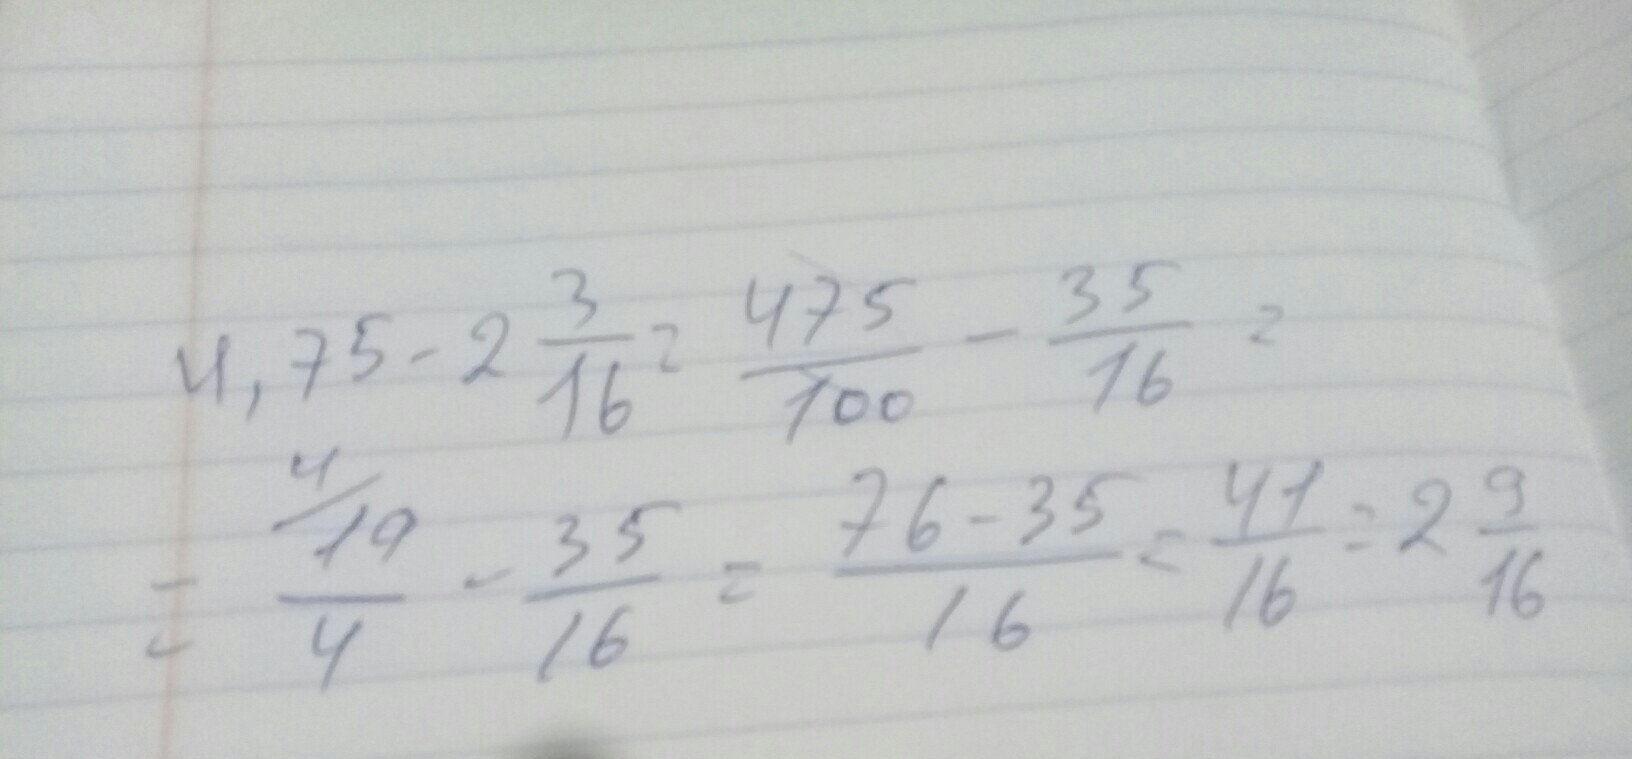 4,75 - 2 3/16 = 475/100 - 35/16 =
= 4/ 19/4 - 35/16 = 76-35/16 = 41/16 = 2 9/16